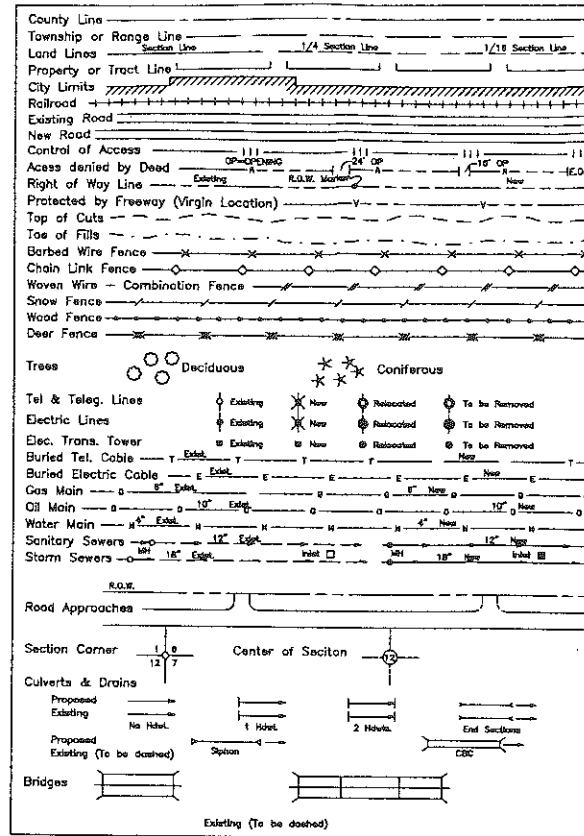 County Line
Township or Range Line
Land Lines Section Line 1/4 Section Line 1/16 Section Line
Property or Tract Line
City Limits
Railroad
Existing Road
New Road
Control of Access
OP=OPENING 24' OP 16' OP
Acess denied by Deed A A A
Right of Way Line Existing R.O.W. Marker New
Protected by Freeway (Virgin Location) V V
Top of Cuts
Toe of Fills
Barbed Wire Fence
Chain Link Fence
Woven Wire - Combination Fence
Snow Fence
Wood Fence
Deer Fence
Trees Deciduous Coniferous
Tel & Teleg. Lines Existing New Relocated To be Removed
Electric Lines Existing New Relocated To be Removed
Elec. Trans. Tower Existing New Relocated To be Removed
Buried Tel. Cable T Exist. T T T New T
Buried Electric Cable E Exist. E E E E New E
Gas Main G 8" Exist. G G 8" New G G
Oil Main O 10" Exist. O O O O 10" New O
Water Main W 4" Exist. W W W W 4" New W W
Sanitary Sewers 12" Exist. 12" New
Storm Sewers MH 18" Exist. Inlet MH 18" New Inlet
R.O.W.
Road Approaches
Section Corner 1 6 12 7 Center of Seciton 12
Culverts & Drains
Proposed
Existing
No Hdwl. 1 Hdwl. 2 Hdwls. End Sections
Proposed
Existing (To be dashed) Siphon CBC
Bridges
Existing (To be dashed)